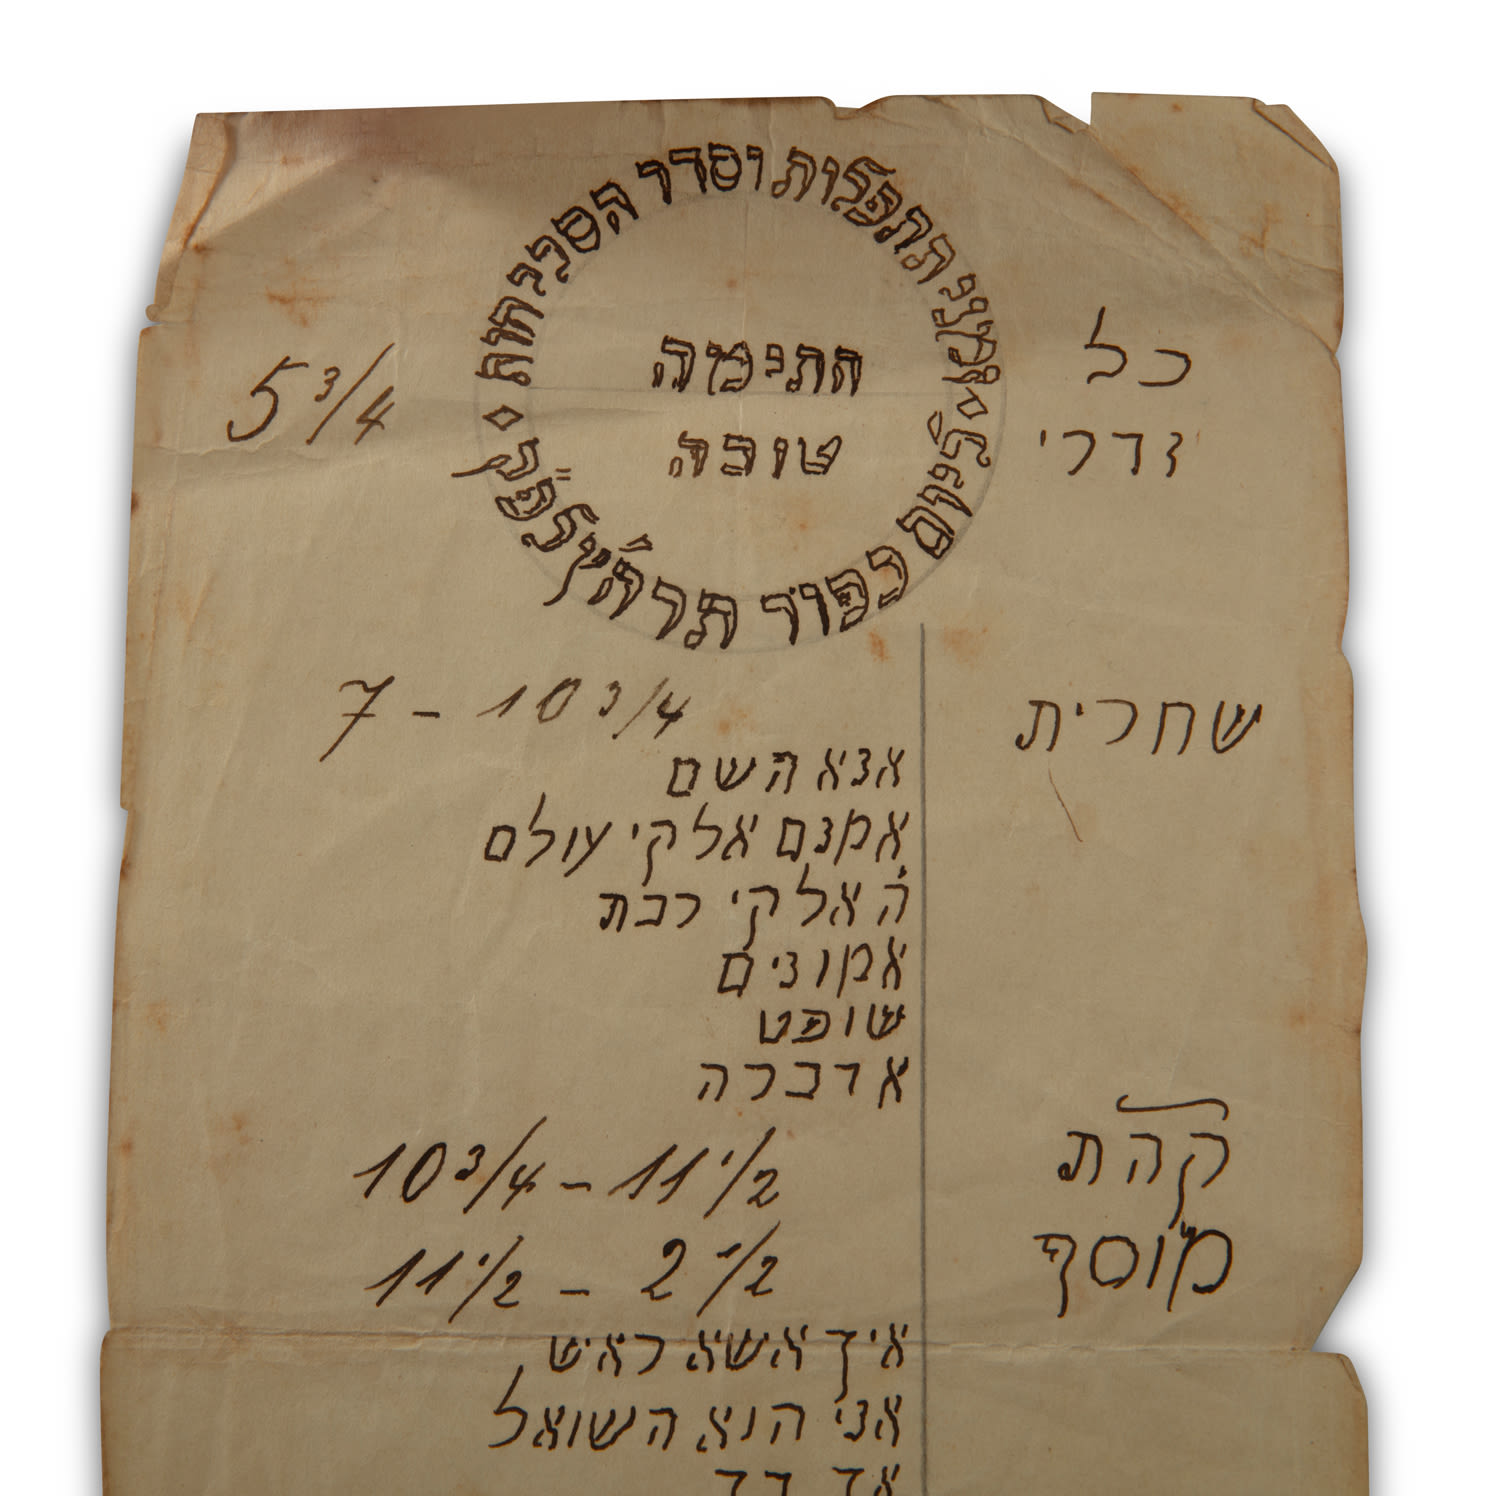 זמני התפלות וסדר הסליחות
ליום כפור תרח"ץ לפ"ק
חתימה
טובה
כל
נדרי 5 3/4
שחרית 7 - 10 3/4
אנא השם
אמנם אלקי עולם
ה' אלקי רבת
אמונים
שופט
אדברה
קהת 10 3/4 - 11 1/2
מוסף 11 1/2 - 2 1/2
איך אשא ראש
אני הוא השואל